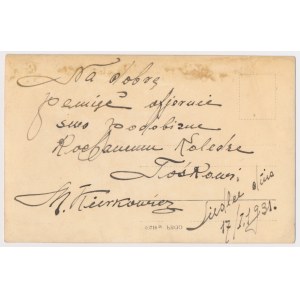 Na dobrą
pamięć ofjaruję
swą podobiznę
Kochanemu Koledze
Tośkowi
M. Kurkowicz
Siedlce
17/II 1931.